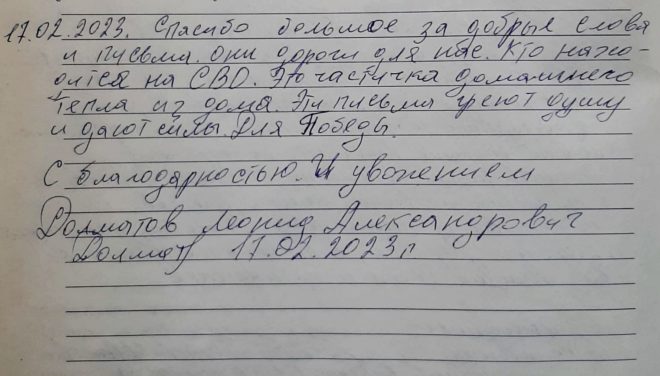 17.02.2023. Спасибо большое за добрые слова
и письма. они дороги для нас. Кто нахо-
дится на СВО. Это частичка домашнего
тепла из дома. Эти письма греют душу
и дают силы. Для Победы.
С благодарностью. И уважением
Долматов Леонид Александрович
Долмат 17.02.2023г